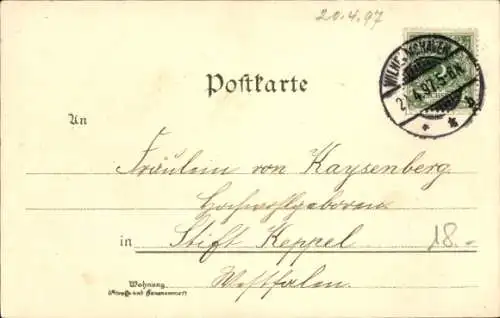 20.4.97
WILHELMSHAVEN
4.97.5-6N
Postkarte
An
Fräulein von Kaysenberg.
Hochwohlgeboren
in Stift Keppel
18.-
Westfalen.
Wohnung
(Straße und Hausnummer)